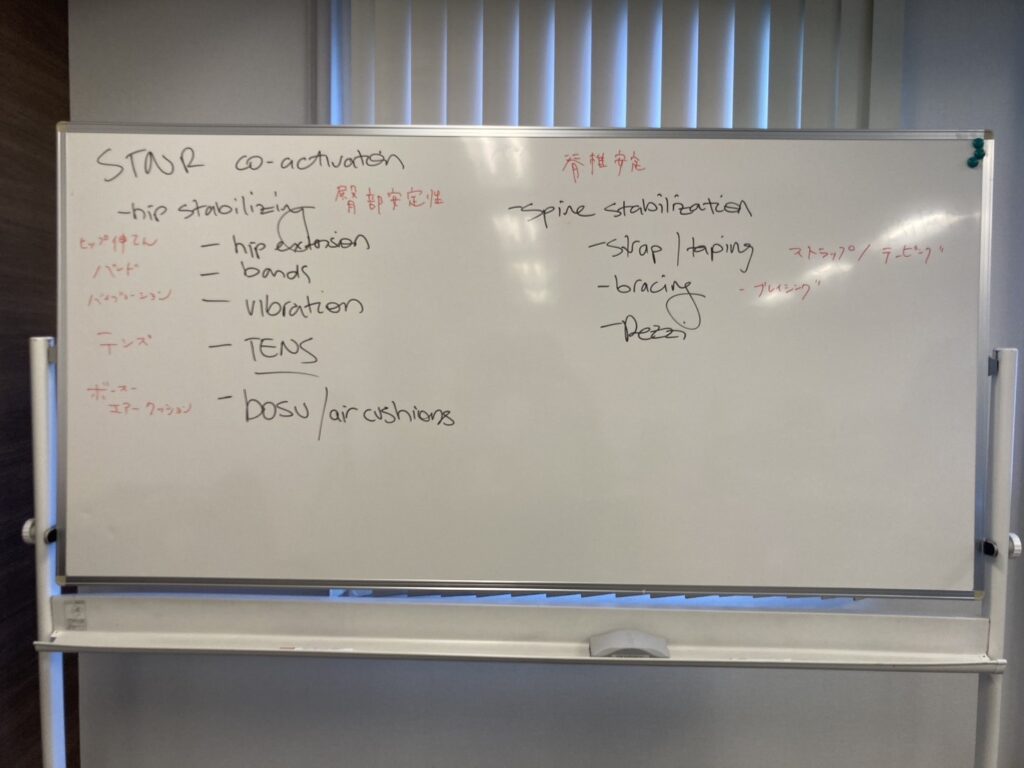 STNR co-activation
-hip stabilizing 臀部安定性
ヒップ伸てん - hip extension
バンド - bands
バイブレーション - vibration
テンズ - TENS
ボースー
エアークッション - bosu/air cushions
脊椎安定
-spine stabilization
-strap/taping ストラップ/テーピング
-bracing - ブレイシング
-Pezzi